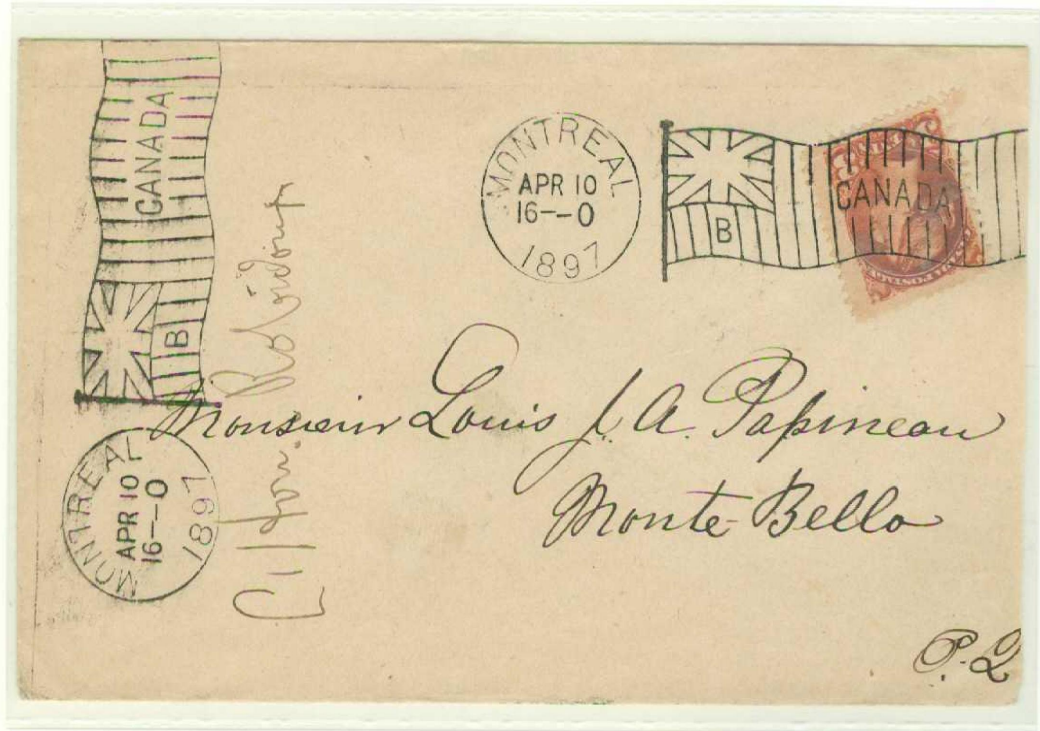 MONTREAL
APR 10
16--0
1897
B
CANADA
CANADA
B
MONTREAL
APR 10
16--0
1897
Monsieur Louis J. A. Papineau
Monte-Bello
P.Q
Hon.